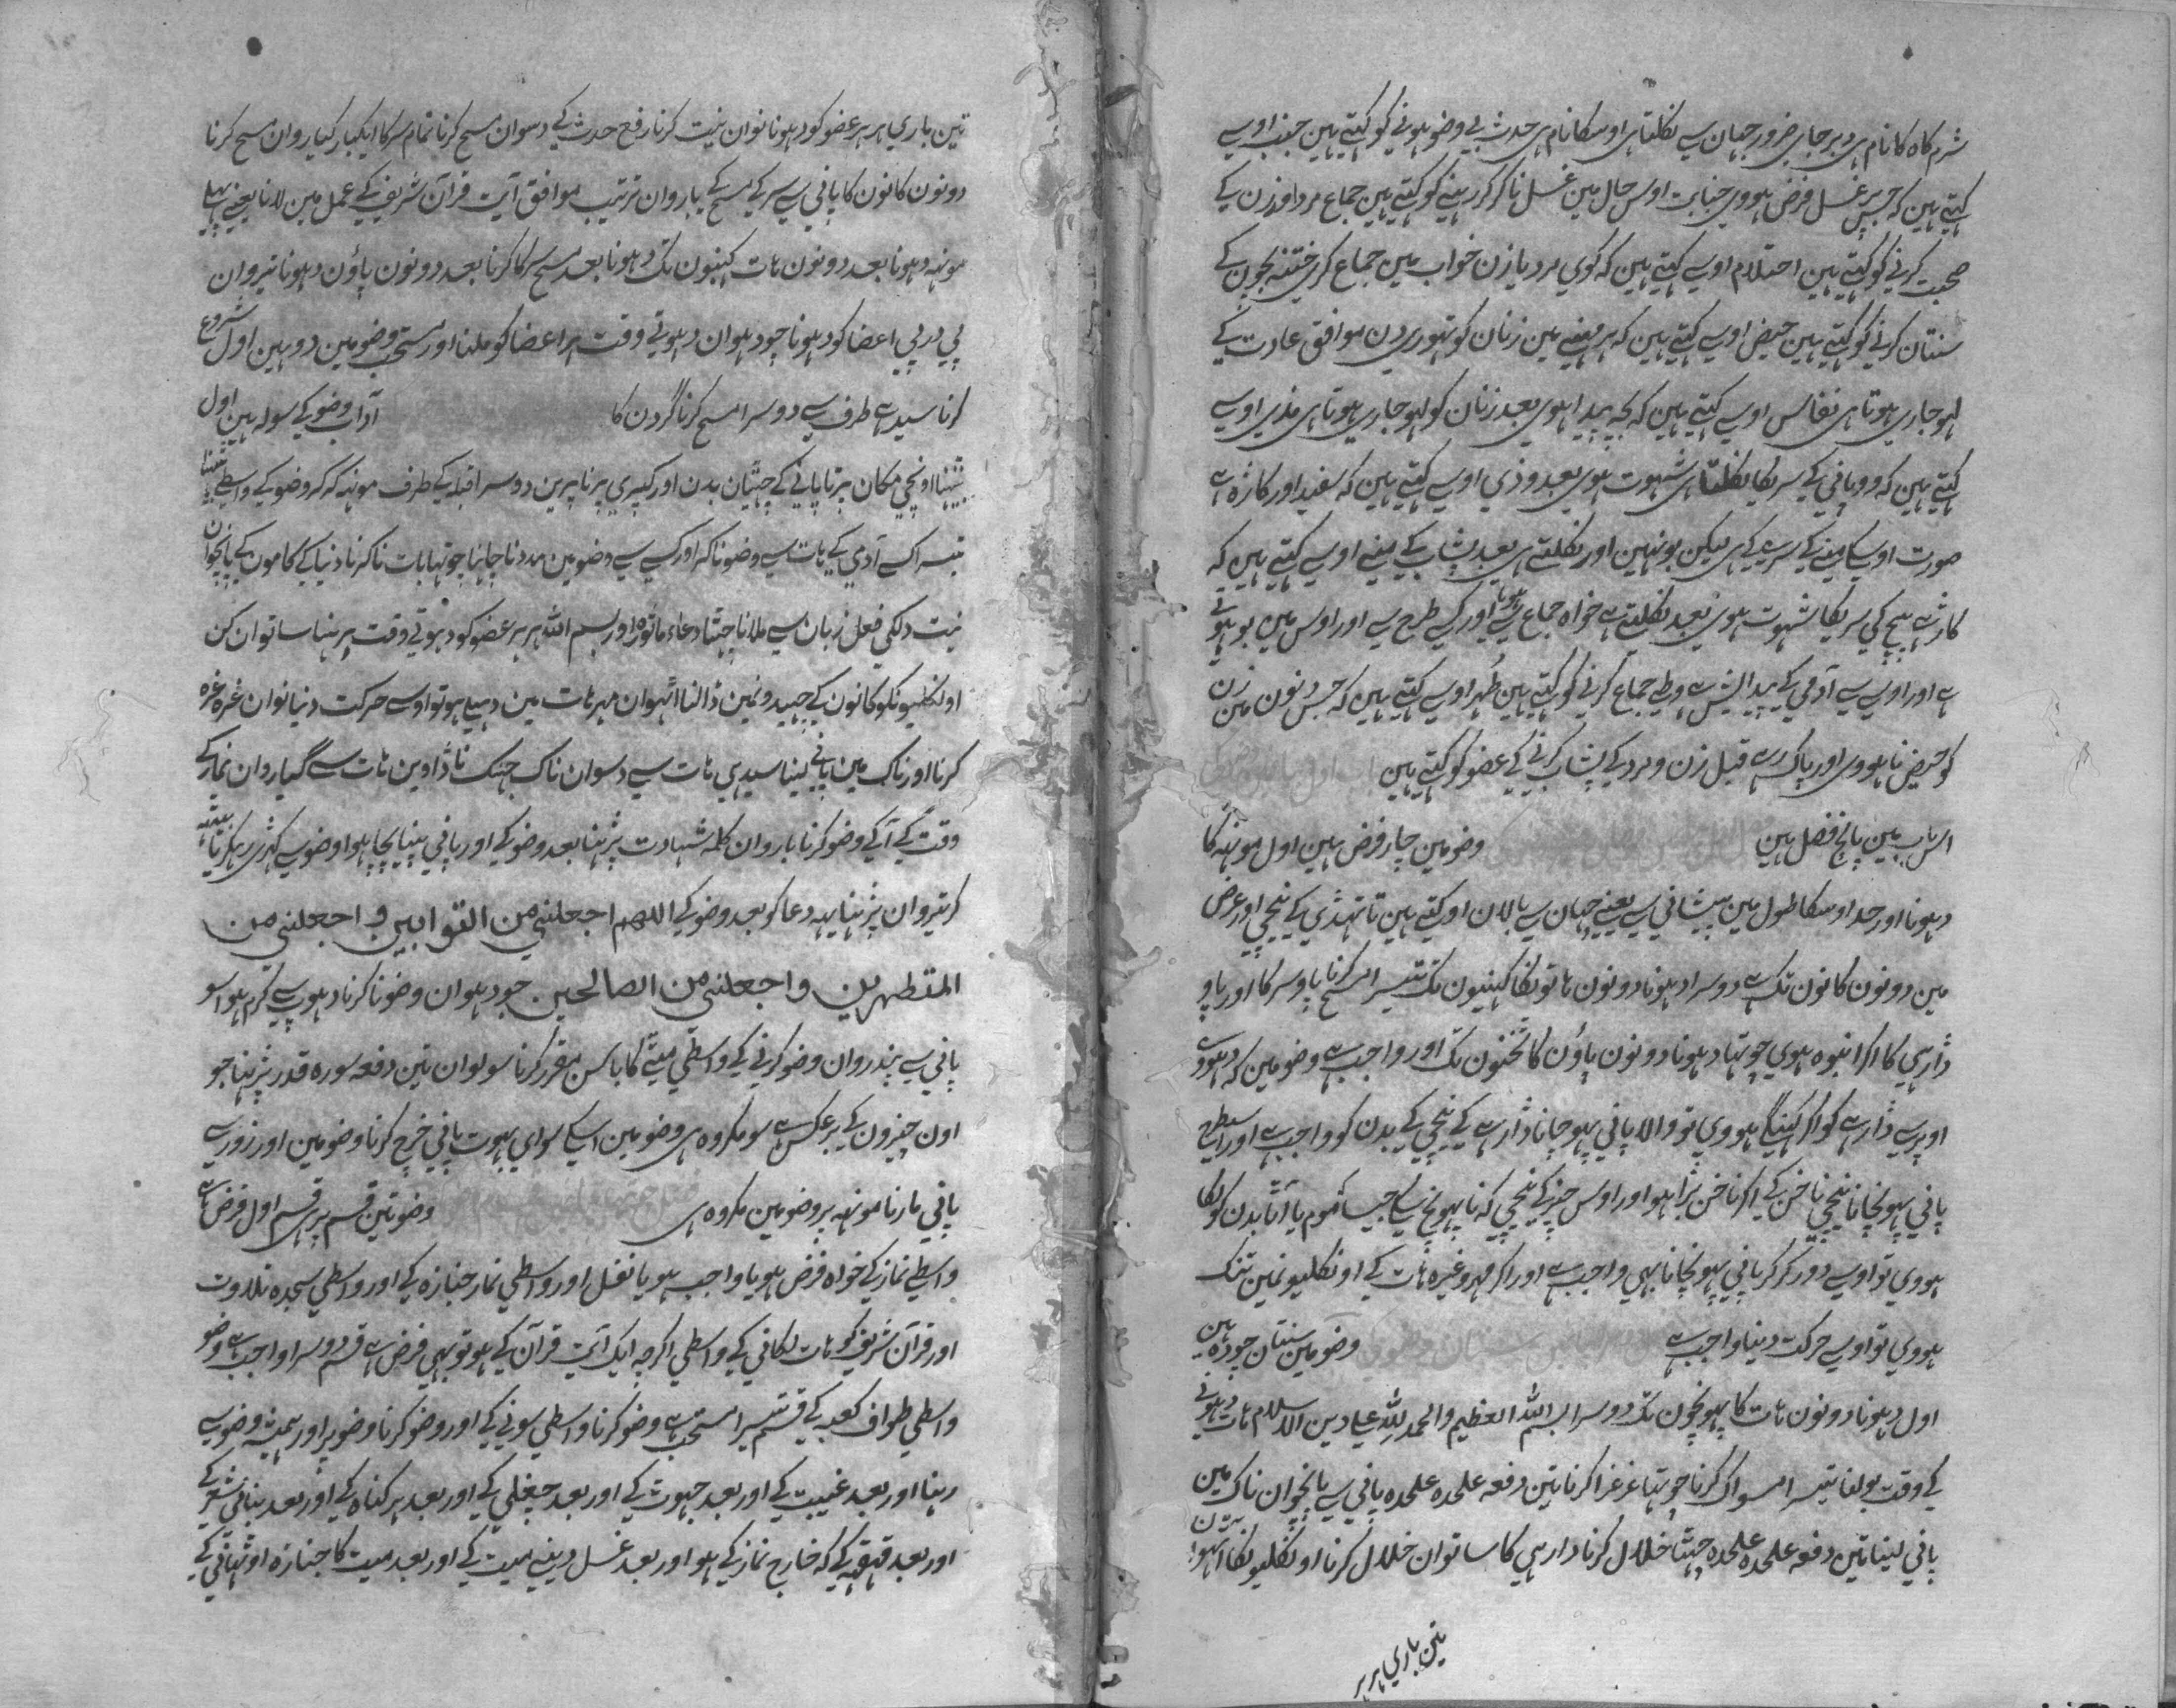 شرم کاه کا نام هی دبر جای ضرور جهان سی نکلتا هی اوسکا نام هی حدث بی وضو هونی کو کهتی هین جنب اوسی
کهتی هین که جس پر غسل فرض هووی جنابت اوس حال مین غسل نا کر کر رهنی کو کهتی هین جماع مرد اور زن کی
صحبت کرنی کو کهتی هین احتلام اوسی کهتی هین که کوی مرد یا زن خواب مین جماع کری ختنه بچون کی
سنتان کرنی کو کهتی هین حیض اوسی کهتی هین که هر مهینی مین زنان کو تهوری دن موافق عادت کی
لهو جاری هوتا هی نفاس اوسی کهتی هین که بچه پیدا هوی بعد زنان کو لهو جاری هوتا هی مذی اوسی
کهتی هین که وو پانی کی سریکا نکلتا هی شهوت هوی بعد وذی اوسی کهتی هین که سفید اور کاڑه هی
صورت اوسکا منی کی سریکی هی لیکن بو نهین اور نکلتی هی بعد پشاب کی منی اوسی کهتی هین که
کاڑی پیچ کی سریکا شهوت هوی بعد نکلتی هی خواه جماع سی هو یا اور کسی طرح سی اور اوس مین بو هوتی
هی اور اوسی سی آدمی کی پیدایش هی وطی جماع کرنی کو کهتی هین طُهر اوسی کهتی هین که جس دنون مین زن
کو حیض نا هووی اور پاک رهی قبل زن و مرد کی پشاب کرنی کی عضو کو کهتی هین
اس باب مین پانچ فصل هین وضو مین چار فرض هین اول مونهه کا
دهونا اور حد اوسکا طول مین پیشانی سی یعنی جهان سی بالان اوکتی هین تا تهڈی کی نیچی اور عرض
مین دونون کانون تک هی دوسرا دهونا دونون هاتونکا کهنیون تک تیسرا مسح کرنا پاو سر کا اور پاو
ڈاڑهی کا اگر انبوه هوی چوتها دهونا دونون پاؤن کا ٹخنون تک اور واجب هی وضو مین که دهووی
اوپر سی ڈاڑهی کو اگر گهنی هووی تو والا پانی پهوچانا ڈاڑهی کی نیچی کی بدن کو واجب هی اور اسیطرح
پانی پهونچانا نیچی ناخن کی اگر ناخن بڑا هو اور اوس چیز کی نیچی که نا پهونچ سکی جیسا موم یا آٹا بدن کو لگا
هووی تو اوسی دور کر کر پانی پهونچانا بهی واجب هی اور اگر مهر وغیره هات کی اونگلیو نمین تنگ
هووی تو اوسی حرکت دینا واجب هی وضو مین سنتان چوده هین
اول دهونا دونون هات کا پهونچون تک دوسرا بسم الله العظیم والحمد لله علی دین الاسلام هات دهونی
کی وقت بولنا تیسرا مسواک کرنا چوتها غرغرا کرنا تین دفعه علحده علحده پانی سی پانچوان ناک مین
پانی لینا تین دفعه علحده علحده چهٹا خلال کرنا ڈاڑهی کا ساتوان خلال کرنا اونگلیونکا آٹهوان
تین باری هر هر
تین باری هر هر عضو کو دهونا نوان نیت کرنا رفع حدث کی دسوان مسح کرنا تمام سر کا ایکبار گیاروان مسح کرنا
دونون کانون کا پانی سی سر کی مسح کی باروان ترتیب موافق آیت قرآن شریف کی عمل مین لانا یعنی پهلی
مونهه دهونا بعد دونون هات کهنیون تک دهونا بعد مسح سر کا کرنا بعد دونون پاؤن دهونا تیروان
پی در پی اعضا کو دهونا چودهوان دهوتی وقت هر اعضا کو ملنا اور مستحب وضو مین دو هین اول شروع
کرنا سیدهی طرف سی دوسرا مسح کرنا گردن کا آداب وضو کی سوله هین اول
بیٹهنا اونچی مکان پر تا پانی کی چهٹیان بدن اور کپڑی پر نا پڑین دوسرا قبله کی طرف مونهه کر کر وضو کی واسطی بیٹهنا
تیسرا کسی آدمی کی هات سی وضو نا کر اور کسی سی وضو مین مدد نا چاهنا چوتها بات نا کرنا دنیا کی کامون کی پانچوان
نیت دلکی فعل زبان سی ملانا چهٹا دعاء ماثوره اور بسم الله هر هر عضو کو دهوتی وقت پڑهنا ساتوان کن
اونگلیونکو کانون کی چهیدونمین ڈالنا آٹهوان مهر هات مین ڈهیلی هو تو اوسی حرکت دینا نوان غرغره
کرنا اور ناک مین پانی لینا سیدهی هات سی دسوان ناک جهٹکنا ڈاوین هات سے گیاروان نماز کی
وقت کی آگی وضو کرنا باروان کلمه شهادت پڑهنا بعد وضو کی اور پانی پینا بچا هوا وضو سی کهڑی رهکر یا بیٹهه
کر تیروان پڑهنا یهه دعا کو بعد وضو کی اللهم اجعلنی من التوابین و اجعلنی من
المتطهرین و اجعلنی من الصالحین چودهوان وضو نا کرنا دهوپ سی گرم هوا سو
پانی سی پندروان وضو کرنی کی واسطی مٹی کا باسن مقرر کرنا سولوان تین دفعه سوره قدر پڑهنا جو
اون چیزون کی برعکس هی سو مکروه هی وضو مین اسکی سوای بهوت پانی خرچ کرنا وضو مین اور زور سی
پانی مارنا مونهه پر وضو مین مکروه هی وضو تین قسم پر هی قسم اول فرض هی
واسطی نماز کی خواه فرض هو یا واجب هو یا نفل اور واسطی نماز جنازه کی اور واسطی سجده تلاوت
اور قرآن شریف کو هات لگانی کی واسطی اگرچه ایک آیت قرآن کی هو تو بهی فرض هی قسم دوسرا واجب هی وضو
واسطی طواف کعبه کی قسم تیسرا مستحب هی وضو کرنا واسطی سونی کی اور وضو کرنا وضو پر اور همیشه وضو سی
رهنا اور بعد غیبت کی اور بعد جهوٹ کی اور بعد چغلی کی اور بعد هر گناه کی اور بعد بنانی شعر کی
اور بعد قهقهه کی که خارج نماز کی هو اور بعد غسل دینی میت کی اور بعد میت کا جنازه اوٹهانی کی